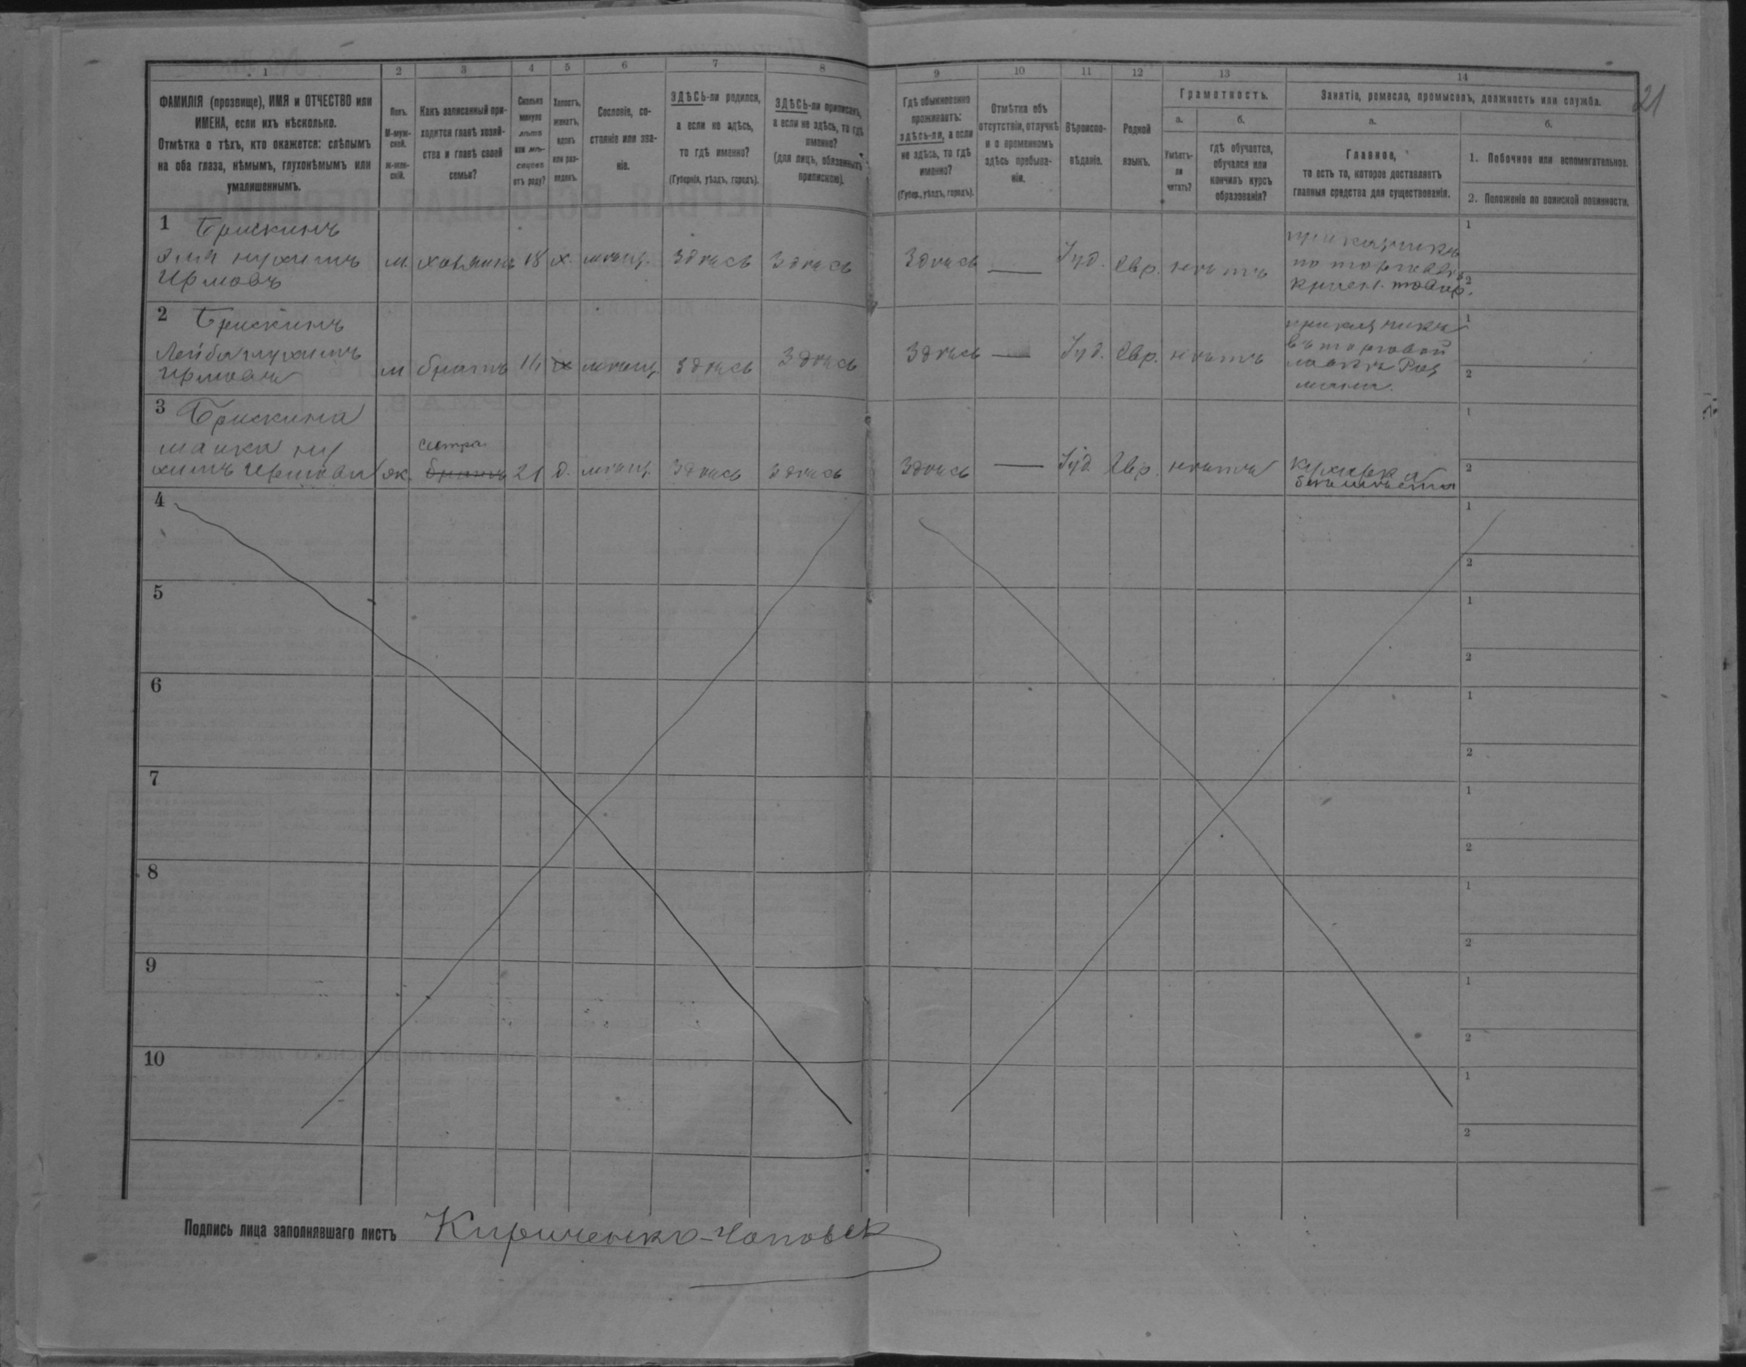 21
1 2 3 4 5 6 7 8 9 10 11 12 13 14
ФАМИЛІЯ (прозвище), ИМЯ и ОТЧЕСТВО или
ИМЕНА, если ихъ нѣсколько.
Отмѣтка о тѣхъ, кто окажется: слѣпымъ
на оба глаза, нѣмымъ, глухонѣмымъ или
умалишеннымъ.
Полъ.
М-муж-
ской.
Ж-жен-
скій.
Какъ записанный при-
ходится главѣ хозяй-
ства и главѣ своей
семьи?
Сколько
минуло
лѣтъ
или мѣ-
сяцевъ
отъ роду?
Холостъ,
женатъ,
вдовъ
или раз-
веденъ.
Сословіе, со-
стояніе или зва-
ніе.
ЗДѢСЬ-ли родился,
а если не здѣсь,
то гдѣ именно?
(Губернія, уѣздъ, городъ).
ЗДѢСЬ-ли приписанъ,
а если не здѣсь, то гдѣ
именно?
(для лицъ, обязанныхъ
припискою).
Гдѣ обыкновенно
проживаетъ:
здѣсь-ли, а если
не здѣсь, то гдѣ
именно?
(Губер., уѣздъ, городъ).
Отмѣтка объ
отсутствіи, отлучкѣ
и о временномъ
здѣсь пребыва-
ніи.
Вѣроиспо-
вѣданіе.
Родной
языкъ.
Грамотность.
а.
Умѣетъ-
ли
читать?
б.
гдѣ обучается,
обучался или
кончилъ курсъ
образованія?
Занятіе, ремесло, промыселъ, должность или служба.
а.
Главное,
то есть то, которое доставляетъ
главныя средства для существованія.
б.
1. Побочное или вспомогательное.
2. Положеніе по воинской повинности.
1 Брискинъ
Нухимъ
м хозяинъ 18 х. мѣщ. здѣсь здѣсь здѣсь — Іуд. Евр. нѣтъ
прикащикъ
по торговлѣ
1
2
2 Брискинъ
Лейба Нухимъ
м братъ х мѣщ. здѣсь здѣсь здѣсь — Іуд. Евр. нѣтъ
прикащикъ
въ торговой
лавкѣ
1
2
3 Брискина
ж. сестра братъ 21 д. мѣщ. здѣсь здѣсь здѣсь — Іуд Евр. нѣтъ
1
2
4
1
2
5
1
2
6
1
2
7
1
2
8
1
2
9
1
2
10
1
2
Подпись лица заполнявшаго листъ Кириченко-